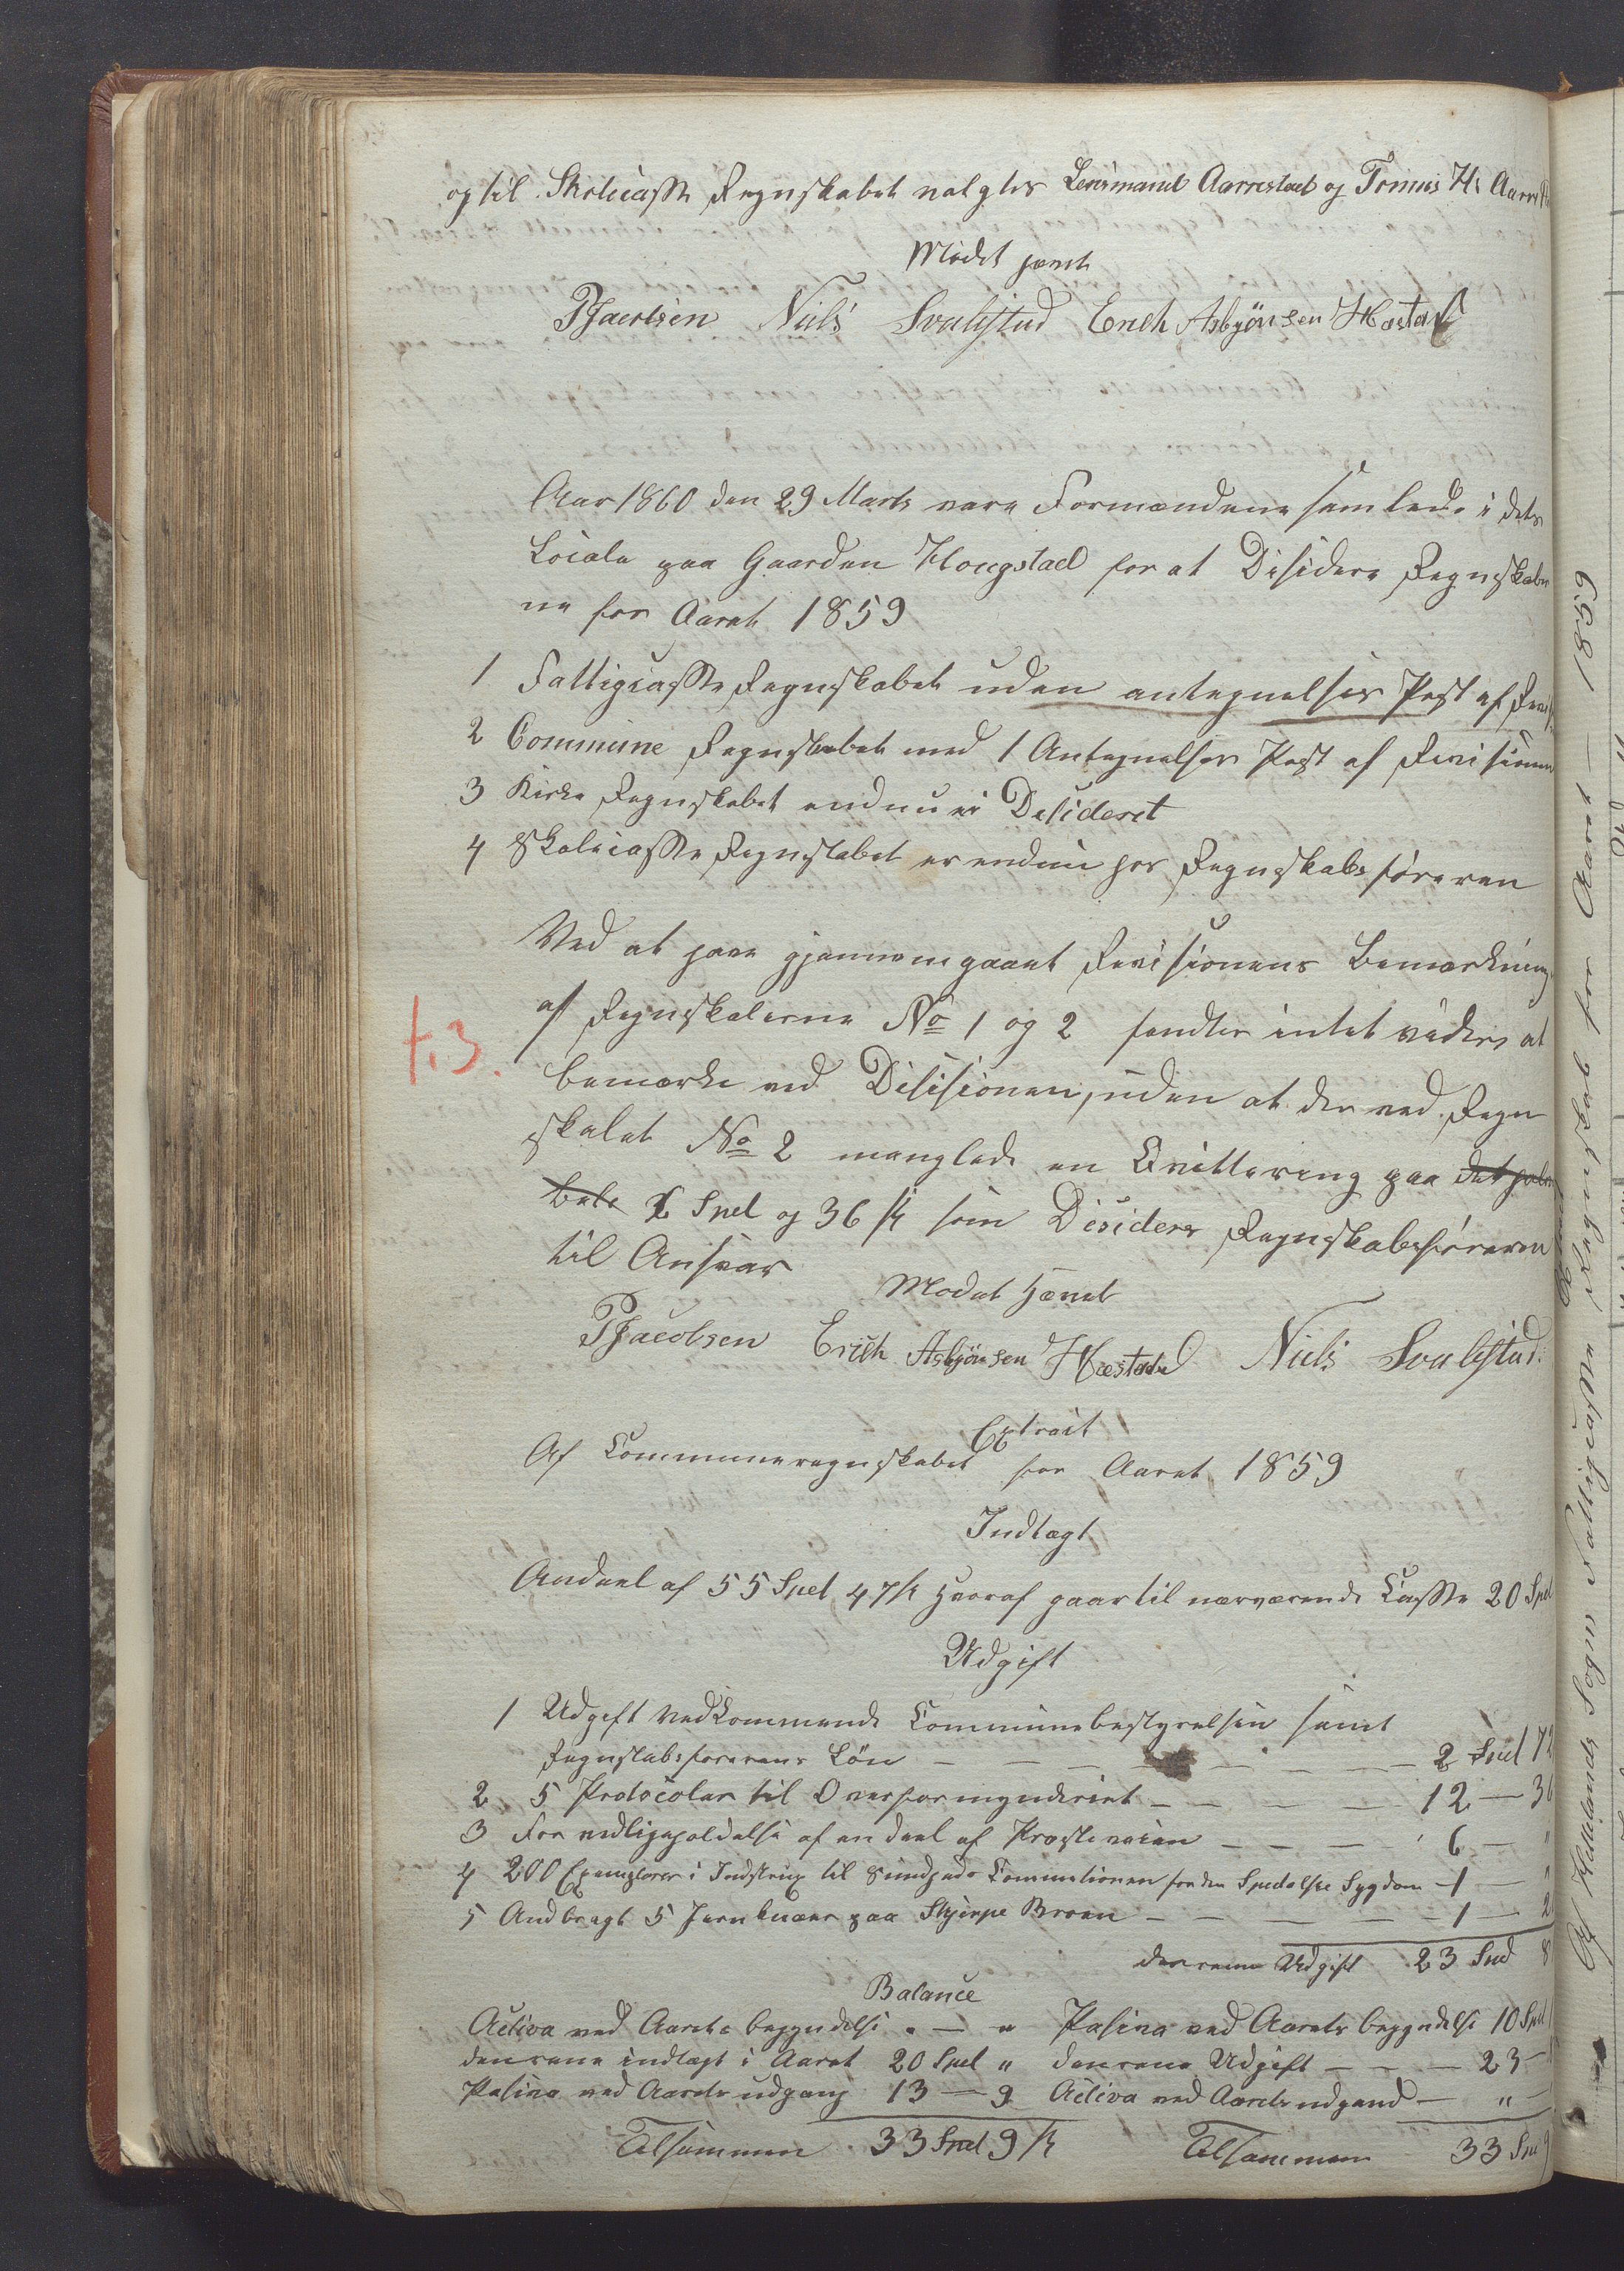 og til Skolecasse Regnskabet valgtes Lensmand Aarrestad og Tønnes Hs Aarrest
Mødet hævet
PJacobsen Niels Svalestad Erich Asbjönsen Hæstad
Aar 1860 den 29 Marts vare Formændene samlede i dets
Locale paa Gaarden Hougstad for at Disidere Regnskaber
ne for Aaret 1859
1 Fattigcasse Regnskabet uden antegnelses Post af Revis
2 Commune Regnskabet med 1 Antegnelses Post af Revisionen
3 Kirke Regnskabet endnu ei Desideret
4 Skolecasse Regnskabet er endnu hos Regnskabsføreren
Ved at have gjennemgaaet Revisionens Bemærkning
af Regnskaberne No 1 og 2 fandtes intet videre at
t.3.
bemærke ved Disisionen, uden at der ved Regn
skabet No 2 manglede en Qvittering paa det
2 Spd og 36 s som Disideres Regnskabsføreren
til Ansvar
Mødet Hævet
PJacobsen Erich Asbjönsen Hæstad Niels Svalestad
Extract
Af Communeregnskabet for Aaret 1859
Indtægt
Andeel af 55 Spd 47 s Hvoraf gaar til nærværende Casse 20 Spd
Udgift
1 Udgift vedkommende Communebestyrelsen samt
Regnskabsførerens Løn — — — — — 2 Spd 72
2 5 Protocoler til Overformynderiet — — — — 12 — 36
3 For vedligeholdelse af en deel af Præsteveien — — — 6 — "
4 200 Exemplarer i Indstrux til Sundheds Commitionen for den Spedalske Sygdom — 1 — "
5 Anbragt 5 Jernknæer paa Skjerpe Broen — — — — — 1 —
den rene Udgift 23 Spd
Balance
Activa ved Aarets begyndelse " — " Pasiva ved Aarets begyndelse 10 Spd
den rene indtægt i Aaret 20 Spd " den rene Udgift — — — 23 —
Pasiva ved Aarets udgang 13 — 9 Activa ved Aarets udgand — " —
Tilsammen 33 Spd 9 s Tilsammen 33 Spd 9
Af Hellands Sogns Fattigcasse Regnskab for Aaret — 1859